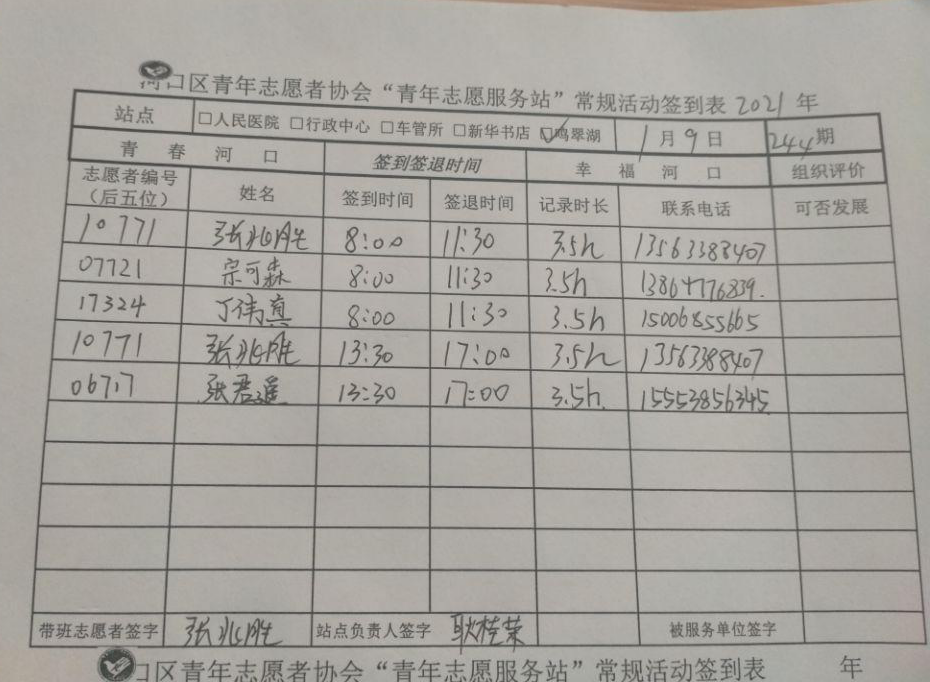 河口区青年志愿者协会“青年志愿服务站”常规活动签到表 2021 年
站点 □人民医院 □行政中心 □车管所 □新华书店 ☑鸣翠湖 1月9日 244期
青春河口 签到签退时间 幸福河口 组织评价
志愿者编号（后五位） 姓名 签到时间 签退时间 记录时长 联系电话 可否发展
10771 张兆胜 8:00 11:30 3.5h 13563388407
07721 宗可森 8:00 11:30 3.5h 13864776839.
17324 丁伟真 8:00 11:30 3.5h 15006855665
10771 张兆胜 13:30 17:00 3.5h 13563388407
06717 张君遥 13:30 17:00 3.5h. 15553856345
带班志愿者签字 张兆胜 站点负责人签字 耿桂荣 被服务单位签字
口区青年志愿者协会“青年志愿服务站”常规活动签到表 年